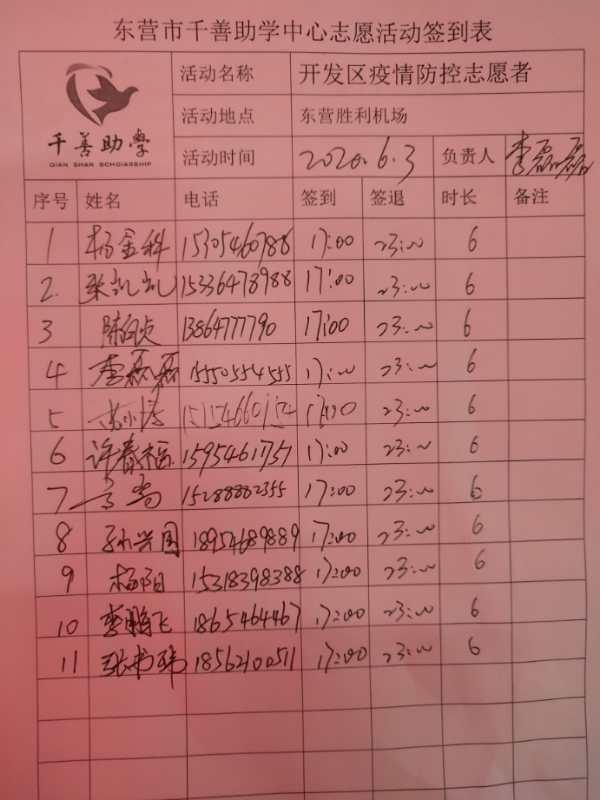 东营市千善助学中心志愿活动签到表
千善助学
QIAN SHAN SCHOLARSHIP
活动名称 开发区疫情防控志愿者
活动地点 东营胜利机场
活动时间 2020.6.3 负责人 李磊磊
序号 姓名 电话 签到 签退 时长 备注
1 杨金科 15305460788 17:00 23:00 6
2. 张凯凯 15336478988 17:00 23:00 6
3 13864777790 17:00 23:00 6
4 李磊磊 15550554555 17:00 23:00 6
5 15154660154 17:00 23:00 6
6 许春福 1595461757 17:00 23:00 6
7 15288882355 17:00 23:00 6
8 孙兴国 18954689889 17:00 23:00 6
9 杨阳 15318398388 17:00 23:00 6
10 李鹏飞 1865464467 17:00 23:00 6
11 18562100511 17:00 23:00 6